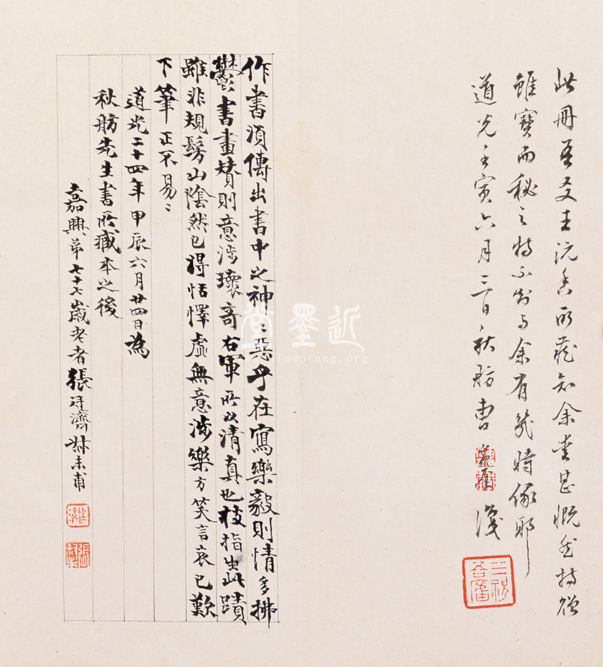 此冊吾友王沅息所藏知余重甚慨然持贈
雖寶而秘之特不知与余有幾時緣耶
道光壬寅六月三百秋舫曹 識
作書須傳出書中之神〻惡乎在寫樂毅則情多拂
鬱書畫賛則意涉瓌奇右軍所以清真也枝指生此蹟
雖非規髣山陰然已得恬懌虛無意涉樂方笑言哀已歎
下筆正不易〻
道光二十四年甲辰六月廿四日為
秋舫先生書所藏本之後
嘉興弟七十七歲老者張廷濟叔未甫
近墨堂
jinmotang.org